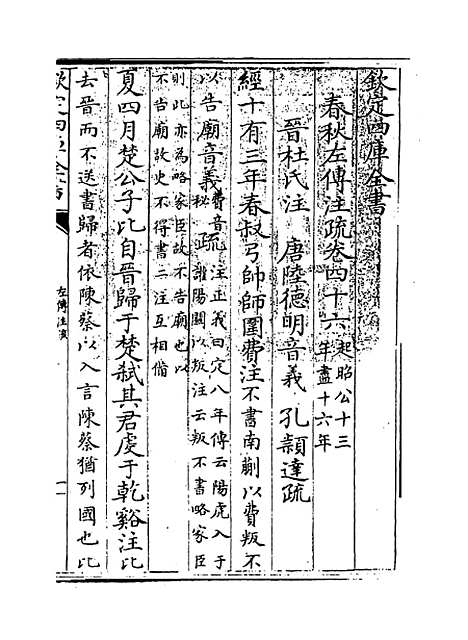 欽定四庫全書
春秋左傳注疏卷四十六
起昭公十三
年盡十六年
晉杜氏注 唐陸德明音義 孔穎達疏
經十有三年春叔弓帥師圍費注不書南蒯以費叛不
以告廟音義
費音
秘
疏
注正義曰定八年傳云陽虎入于
讙陽關以叛注云叛不書略家臣
則此亦為略家臣故不告廟也以
不告廟故史不得書二注互相備
夏四月楚公子比自晉歸于楚弑其君虔于乾谿注比
去晉而不送書歸者依陳蔡以入言陳蔡猶列國也比
欽定四庫全書
左傳注疏
一